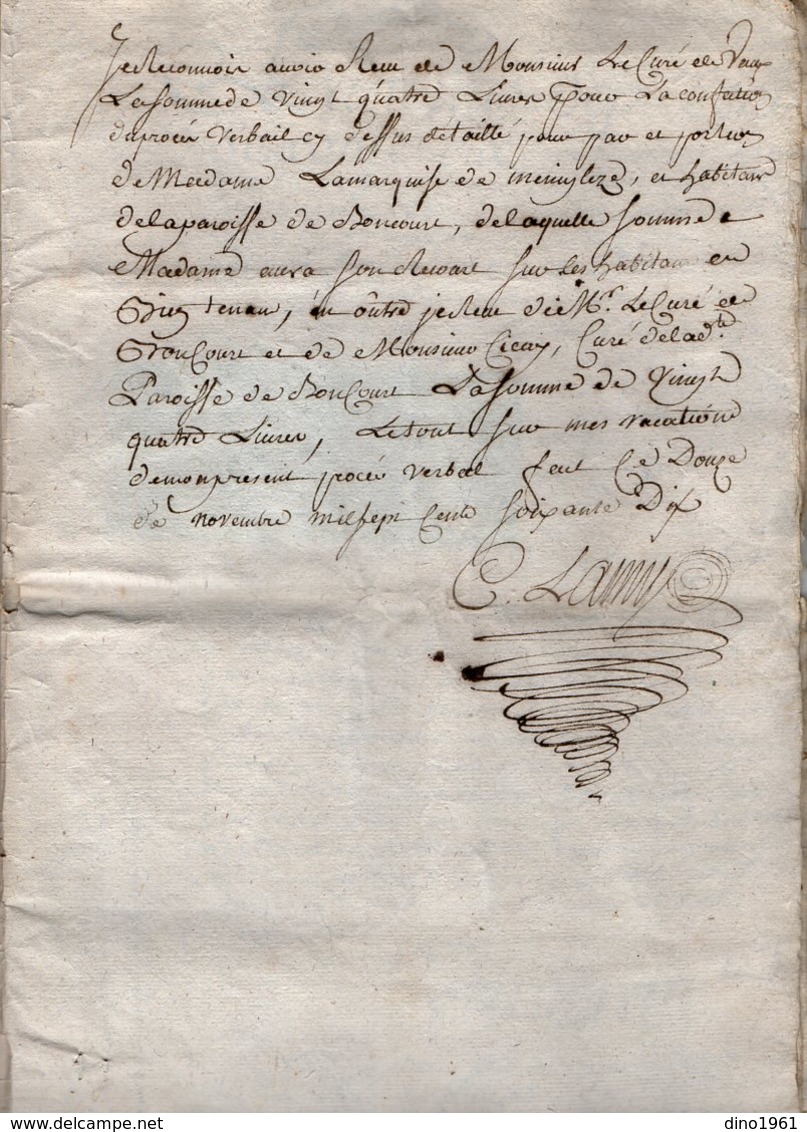 Je Reconnois avoir Receu de Monsieur Le Curé de Vaux
La somme de vingt quatre Livres pour La confection
du procés verbail cy dessus detaillé pour par et portion
de Madame Lamarquise de, et habitans
de la paroisse de Boncourt, de laquelle somme
Madame aura son Recourt sur les habitans
, en oûtre je Receu de Mr. Le Curé de
BonCourt et de Monsieur, Curé de la dte
Paroisse de BonCourt La somme de vingt
quatre Livres, Le tout sur mes vacations
de mon present procés verbal fait Ce Douze
de novembre mil sept Cents soixante Dix
C. Lamy
delcampe.net
dino1961